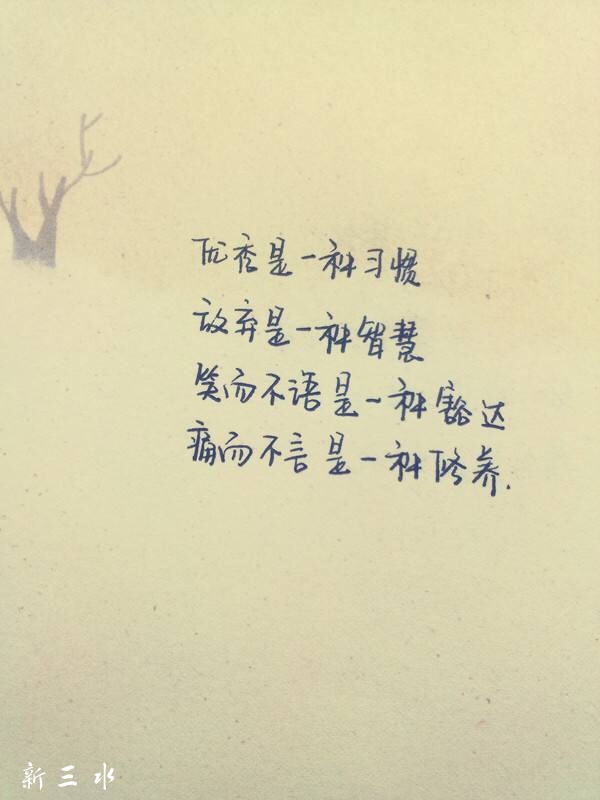 优秀是一种习惯
放弃是一种智慧
笑而不语是一种豁达
痛而不言是一种修养.
新三水